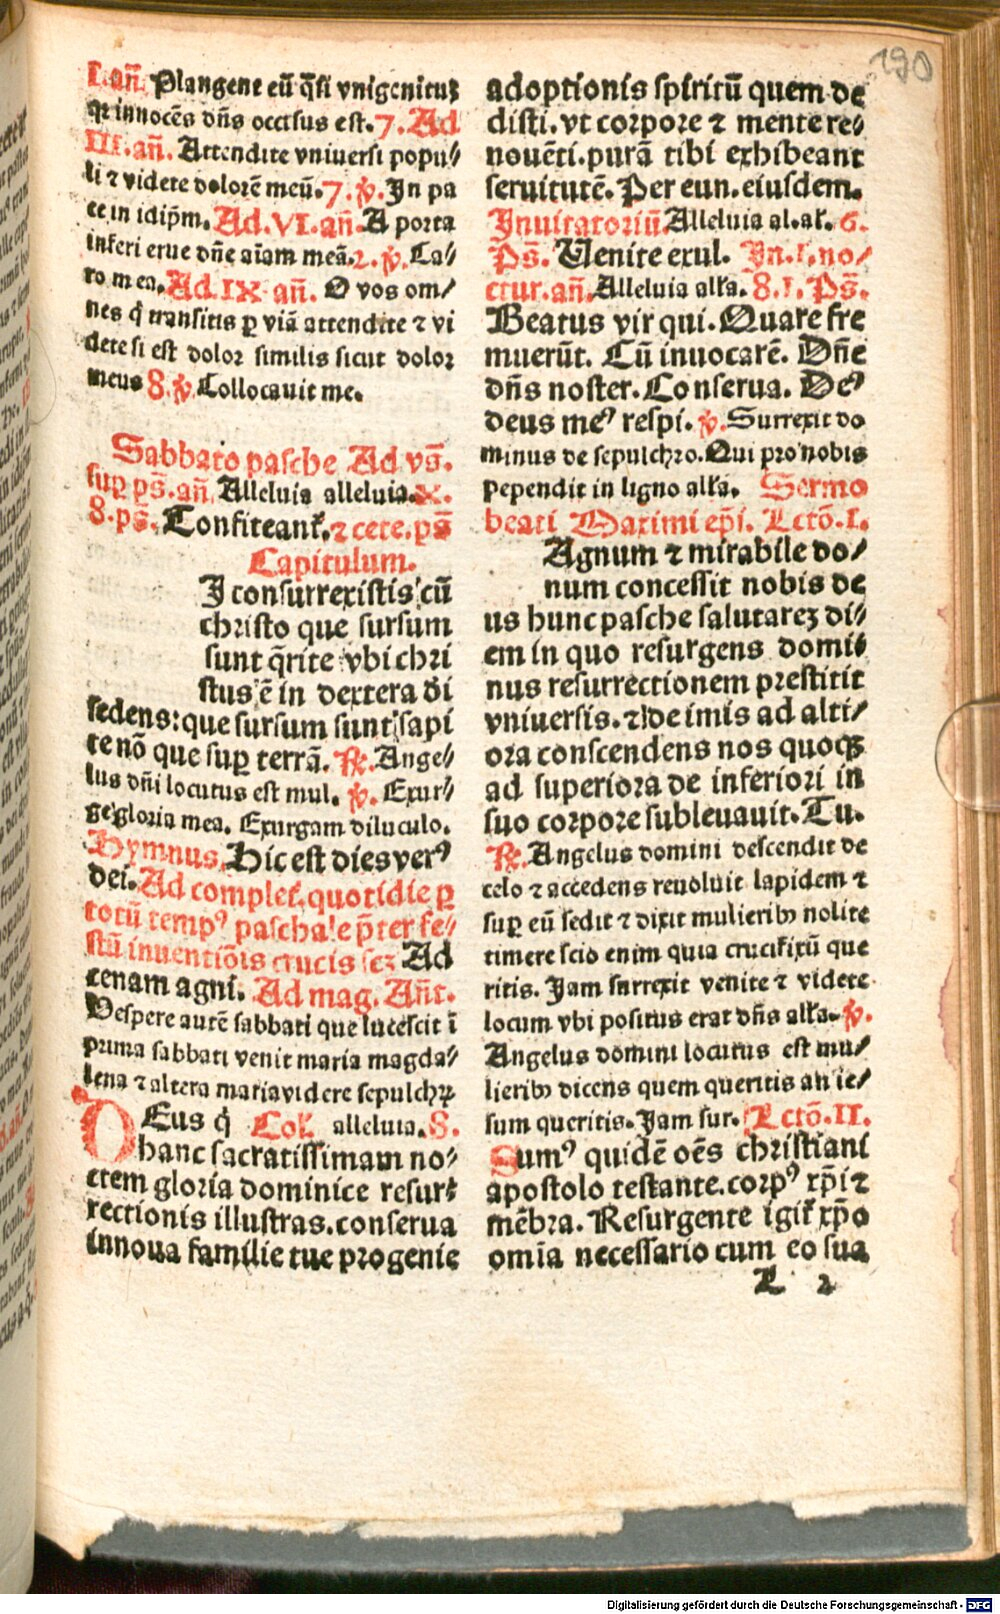 I. an̄. Plangent eū q̄si vnigenituꝫ
qꝛ innocēs dn̄s occisus est. 7. Ad
III. an̄. Attendite vniuersi popu⸗
li ⁊ videte dolorē meū. 7. ꝟ. In pa
ce in idip̄m. Ad. VI. an̄. A porta
inferi erue dn̄e aīam meā. 2. ꝟ. Ca⸗
ro mea. Ad IX an̄. O vos om⸗
nes q̇ transitis ꝑ viā attendite ⁊ vi
dete si est dolor similis sicut dolor
meus 8. ꝟ. Collocauit me.
Sabbato pasche Ad vs̄.
suꝑ ps̄. an̄. Alleluia alleluia. X.
8. ps̄. Confiteant̉. ⁊ cete. ps̄
Capitulum.
I consurrexistis cū
christo que sursum
sunt q̄rite vbi chri
stus ē in dextera di
sedens: que sursum sunt sapi
te nō que suꝑ terrā. ℟. Ange⸗
lus dn̄i locutus est mul. ꝟ. Exur⸗
ge gloria mea. Exurgam diluculo.
Hymnus. Hic est dies verꝰ
dei. Ad complet̉. quotidie ꝑ
totū tempꝰ paschale p̄ter fe⸗
stū inuentiōis crucis seꝫ Ad
cenam agni. Ad mag. Ant̄.
Vespere autē sabbati que lucescit ī
prima sabbati venit maria magda⸗
lena ⁊ altera maria videre sepulchꝝ
DEus q̇ Col̉. alleluia. 8.
hanc sacratissimam no⸗
ctem gloria dominice resur⸗
rectionis illustras. conserua
innoua familie tue progenie
190
adoptionis spiritū quem de
disti. vt corpore ⁊ mente re⸗
nouēti. purā tibi exhibeant
seruitutē. Per eun. eiusdem.
Inuitatoriū Alleluia al. al̉. 6.
Ps̄. Venite exul. In. I. no⸗
ctur. an̄. Alleluia all̉a. 8. I. Ps̄.
Beatus vir qui. Quare fre
muerūt. Cū inuocarē. Dn̄e
dn̄s noster. Conserua. Deꝰ
deus meꝰ respi. ꝟ. Surrexit do
minus de sepulchro. Qui pro nobis
pependit in ligno all̉a. Sermo
beati Maximi ep̄i. Lctō. I.
Agnum ⁊ mirabile do⸗
num concessit nobis de
us hunc pasche salutareꝫ di⸗
em in quo resurgens domi⸗
nus resurrectionem prestitit
vniuersis. ⁊ de imis ad alti⸗
ora conscendens nos quoqꝫ
ad superiora de inferiori in
suo corpore subleuauit. Tu.
℟. Angelus domini descendit de
celo ⁊ accedens reuoluit lapidem ⁊
suꝑ eū sedit ⁊ dixit mulieribꝰ nolite
timere scio enim quia crucifixū que
ritis. Jam surrexit venite ⁊ videte
locum vbi positus erat dn̄s all̉a. ꝟ.
Angelus domini locutus est mu⸗
lieribꝰ dicens quem queritis an ie⸗
sum queritis. Jam sur. Lctō. II.
Sumꝰ quidē oēs christiani
apostolo testante. corpꝰ xp̄i ⁊
mēbra. Resurgente igit̉ xp̄o
omīa necessario cum eo sua
L 2
Digitalisierung gefördert durch die Deutsche Forschungsgemeinschaft - DFG